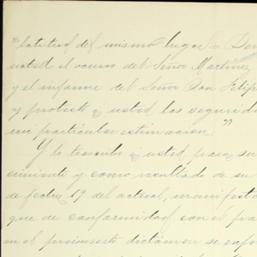 del mismo lugar
usted el ocurso del Señor Martinez
y el informe del Señor San Felip
y protesto á usted las segurida
mi particular estimacion."
Y lo trascribo á usted para su
cimiento y como resultado de su
de fecha 19 del actual, manifesto
que de conformidad con el
en el preinserto dictámen se